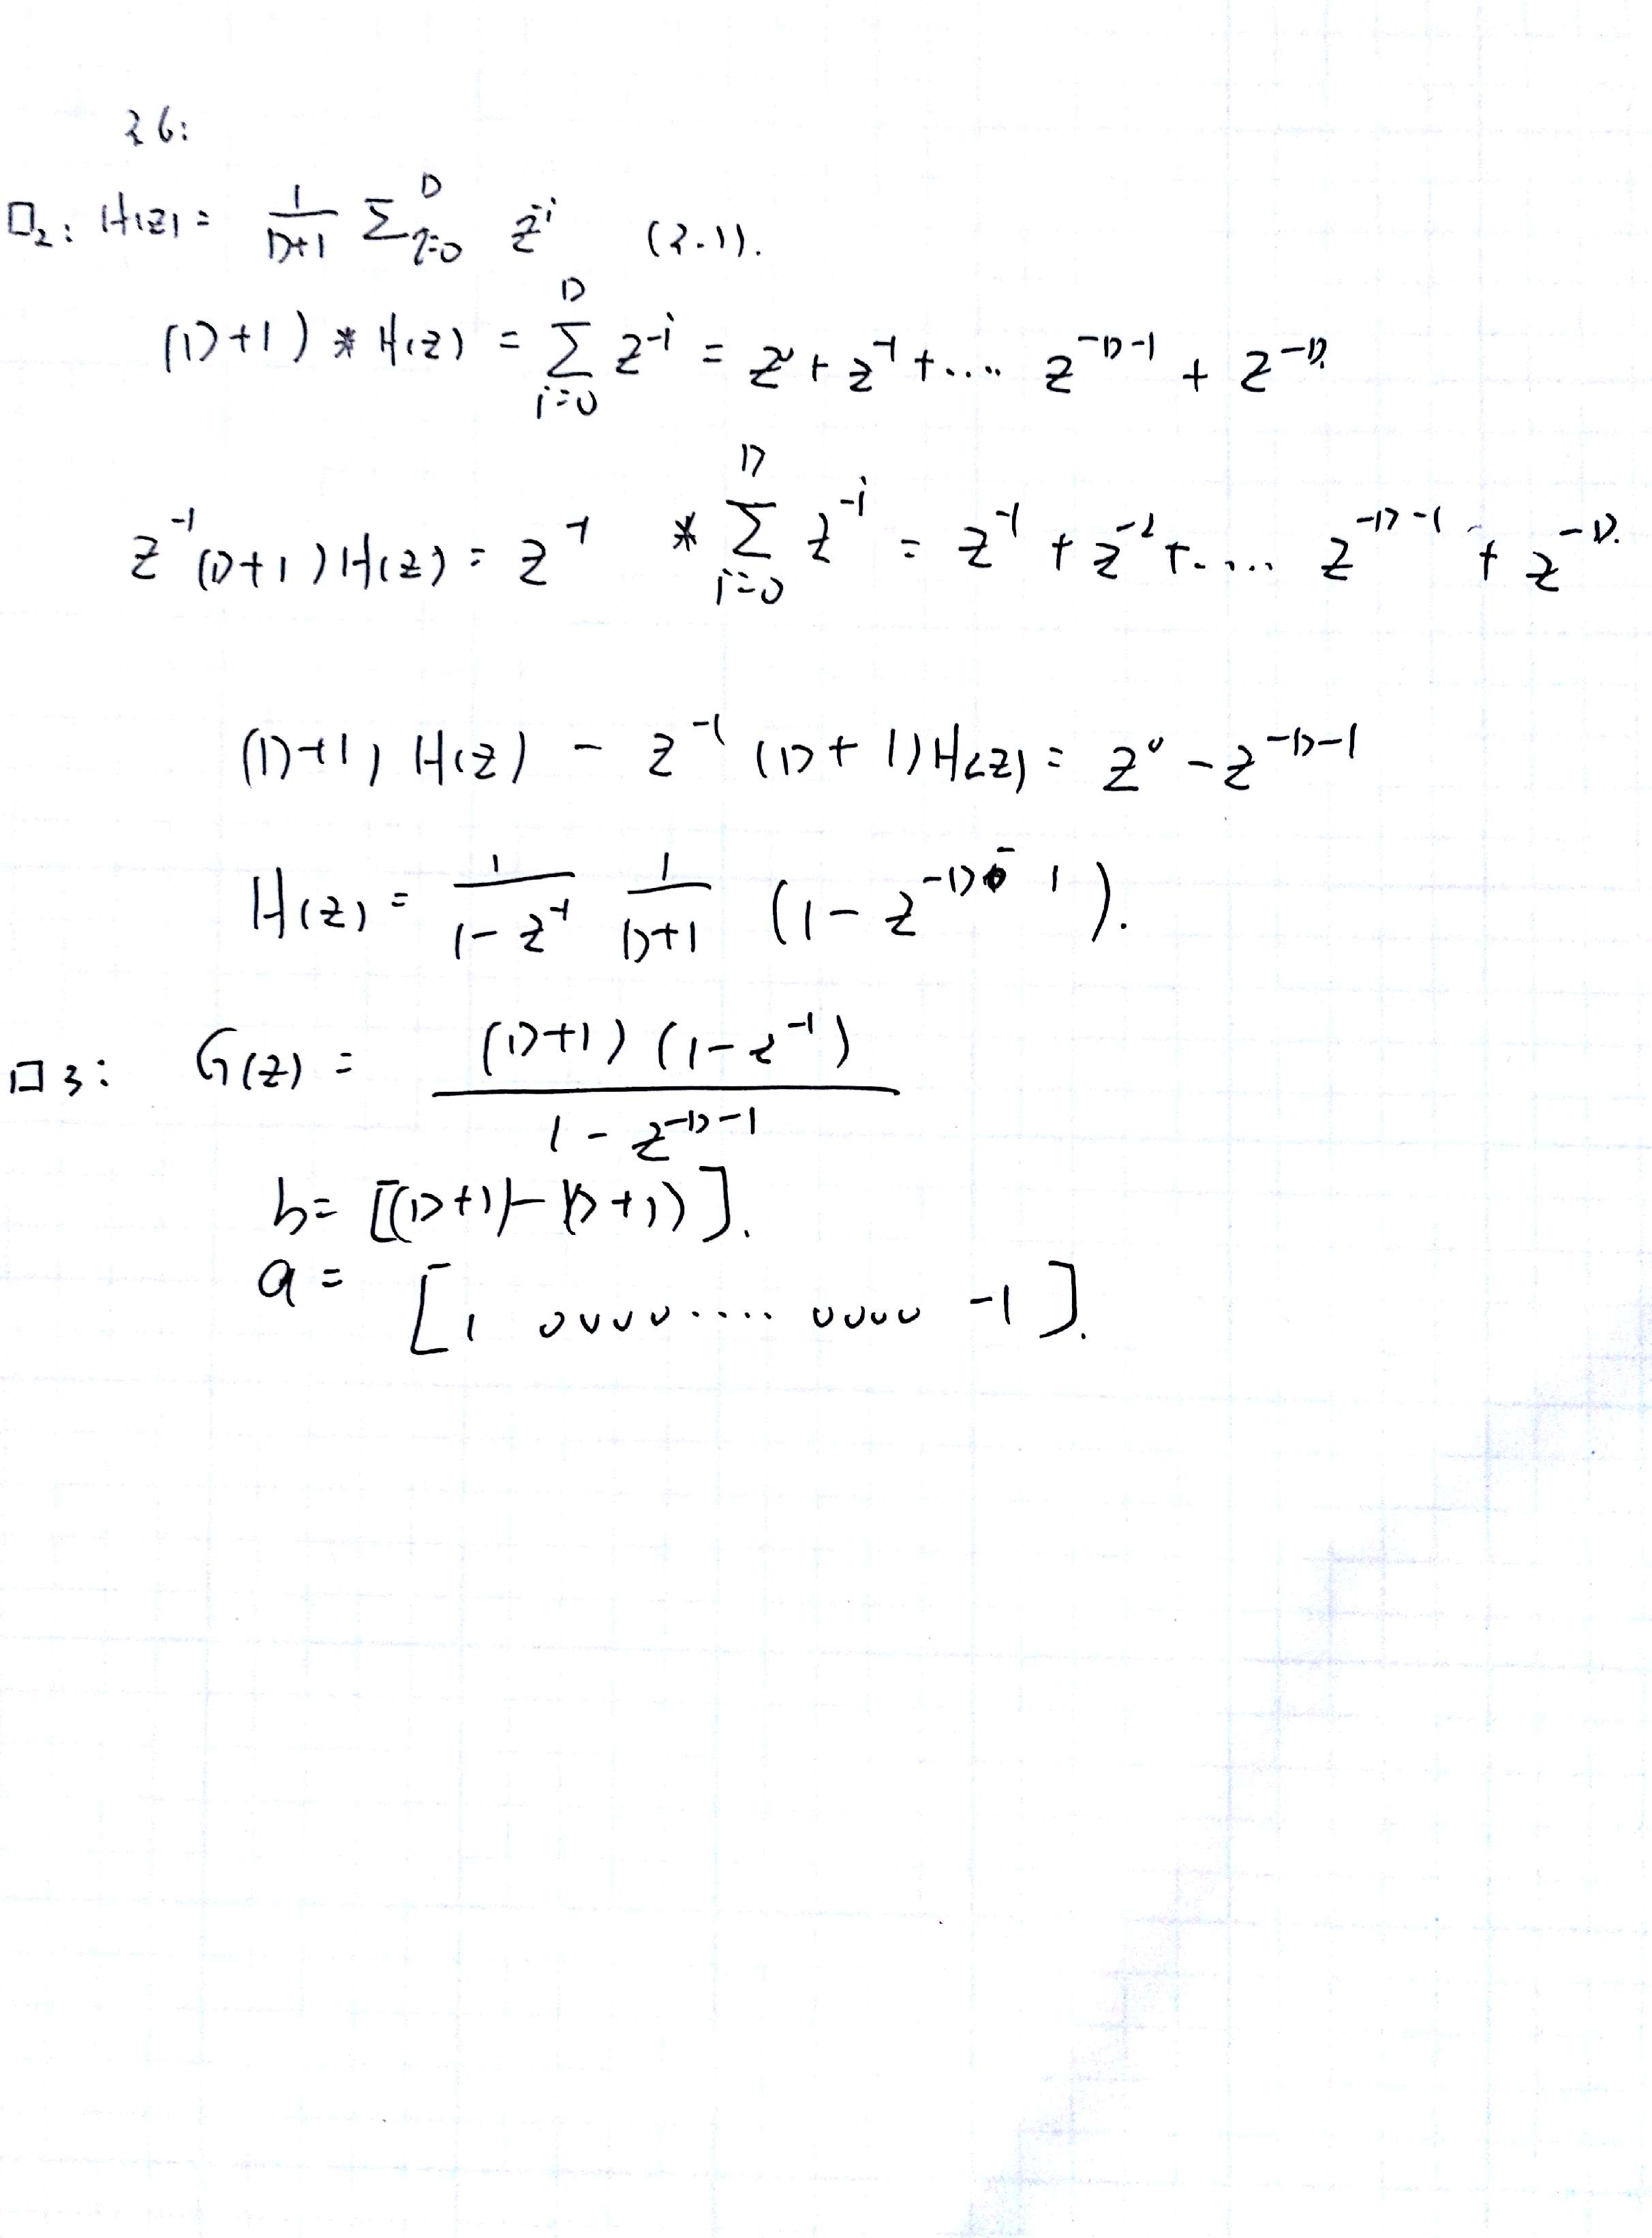 26:
□2: H(z) = \frac{1}{D+1} \sum_{i=0}^{D} z^{-i} (2.1).
(D+1) * H(z) = \sum_{i=0}^{D} z^{-i} = z^0 + z^{-1} + .... z^{-D-1} + z^{-D}.
z^{-1} (D+1) H(z) = z^{-1} * \sum_{i=0}^{D} z^{-i} = z^{-1} + z^{-2} + .... z^{-D-1} + z^{-D}.
(D+1) H(z) - z^{-1} (D+1) H(z) = z^0 - z^{-D-1}
H(z) = \frac{1}{1-z^{-1}} \frac{1}{D+1} (1 - z^{-D-1}).
□3: G(z) = \frac{(D+1)(1-z^{-1})}{1-z^{-D-1}}
b = [(D+1) -(D+1)].
a = [1 0000.... 0000 -1].